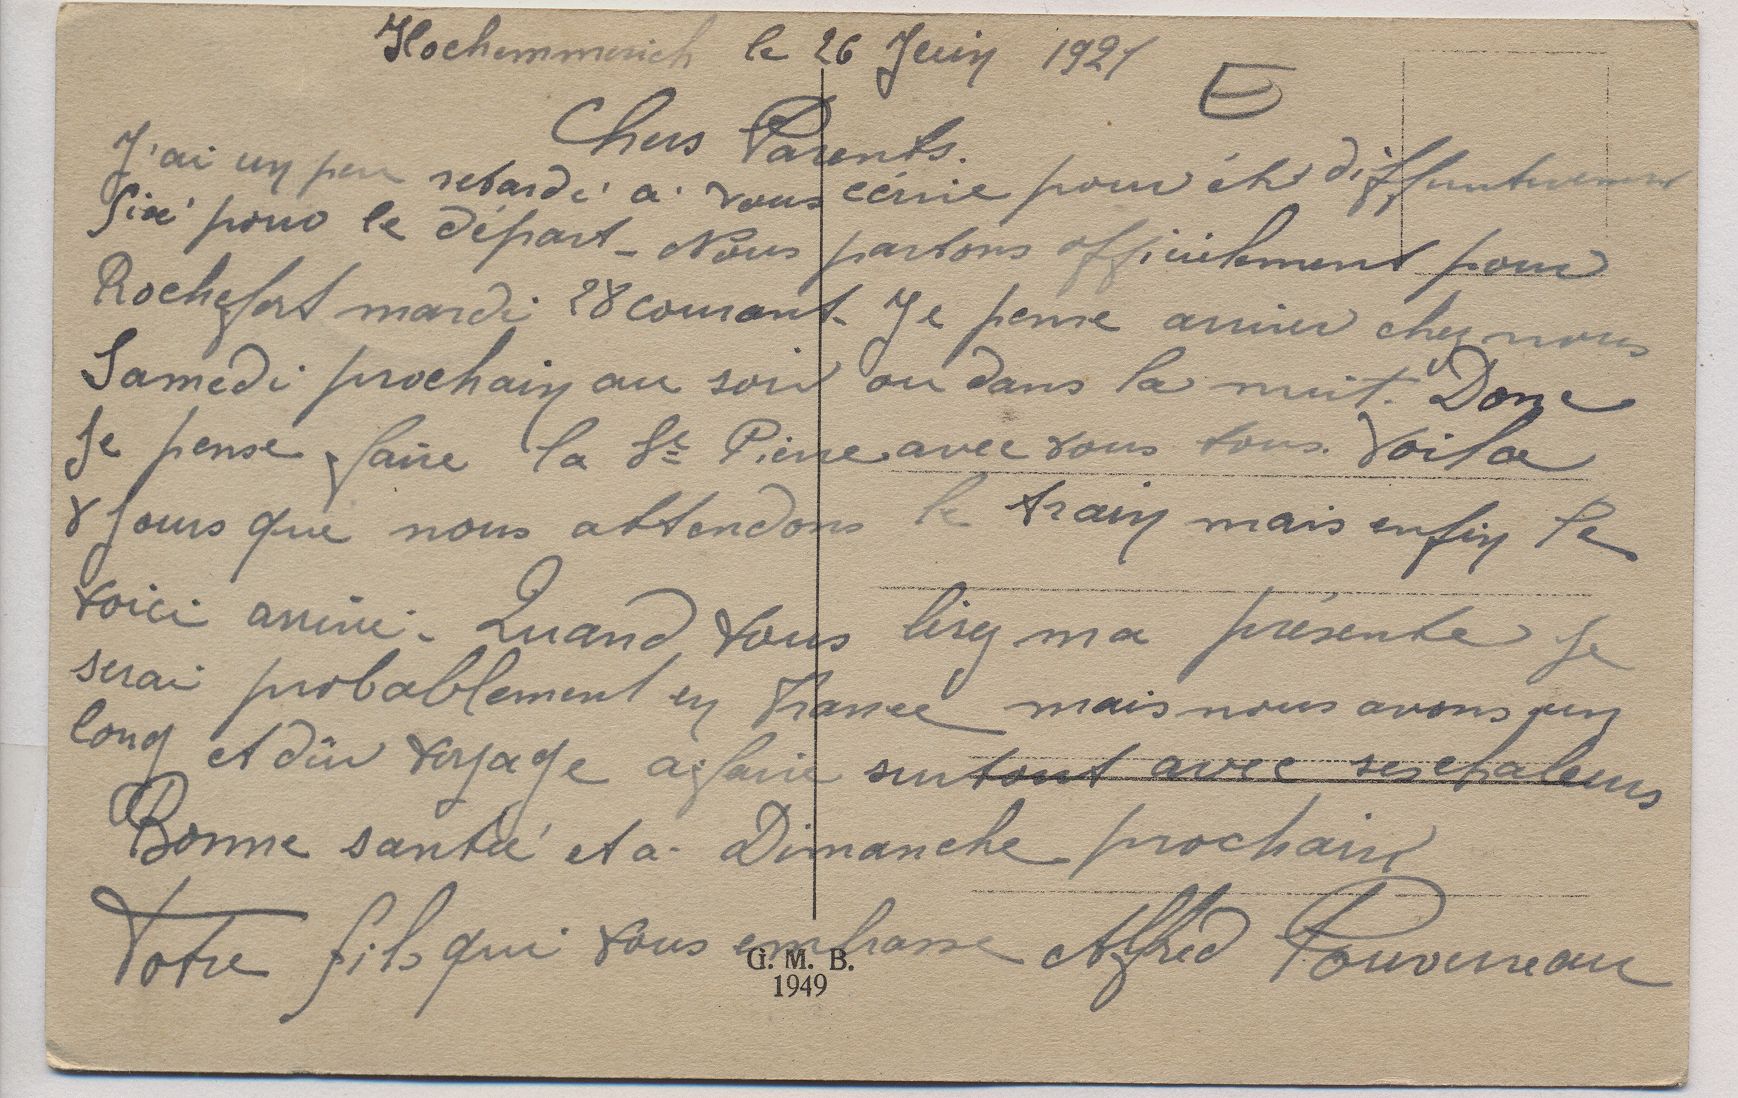 Hochemmerich le 26 Juin 1921
E
Chers Parents.
J'ai un peu retardé a vous écrire pour êtr
fixé pour le départ - Nous partons officielement pour
Rochefort mardi 28 courant. Je pense arriver chez nous
Samedi prochain au soir ou dans la nuit. Donc
Je pense faire la St Pierre avec vous tous. Voila
8 Jours que nous attendons le train mais enfin le
voici arrivé - Quand vous lirez ma présente Je
serai probablement en France mais nous avons un
long et dûr voyage a faire surtout avec ses chaleurs
Bonne santé et a Dimanche prochain
Votre fils qui vous embrasse Alfred
G. M. B.
1949